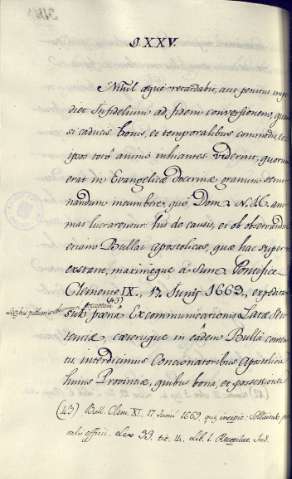 §. XXV.
Nihil æque retardabit, aut penitus impe
diet Infidelium ad fidem conversionem, quam
si caducis bonis, et temporalibus commodis
ipsos toto animo inhiantes viderint, quorum
erat in Evangelicæ Doctrinæ granum semi
nandum incumbere, quo Domino N.
mas lucrarentur his de causis, et ob observandam
Bullas Apostolicas, quæ hac super re
extant, maximeque à Sum. Pontifice
Clemente IX. 17. Junij 1669. expeditam
(43)
sub pœna Excommunicationis Latæ Sen
tentiæ, cæterisque in eâdem Bullâ conten
tis, interdicimus Concionatoribus Apostolicis
hujus Provinciæ, quibus bona, et
(43) Bull. Clem. XI. 17. Junii 1669. quæ incipit: Sollicitudo pas
toralis officii. Lex 39. tit. 14. lib. 1. Recopilac. Ind.